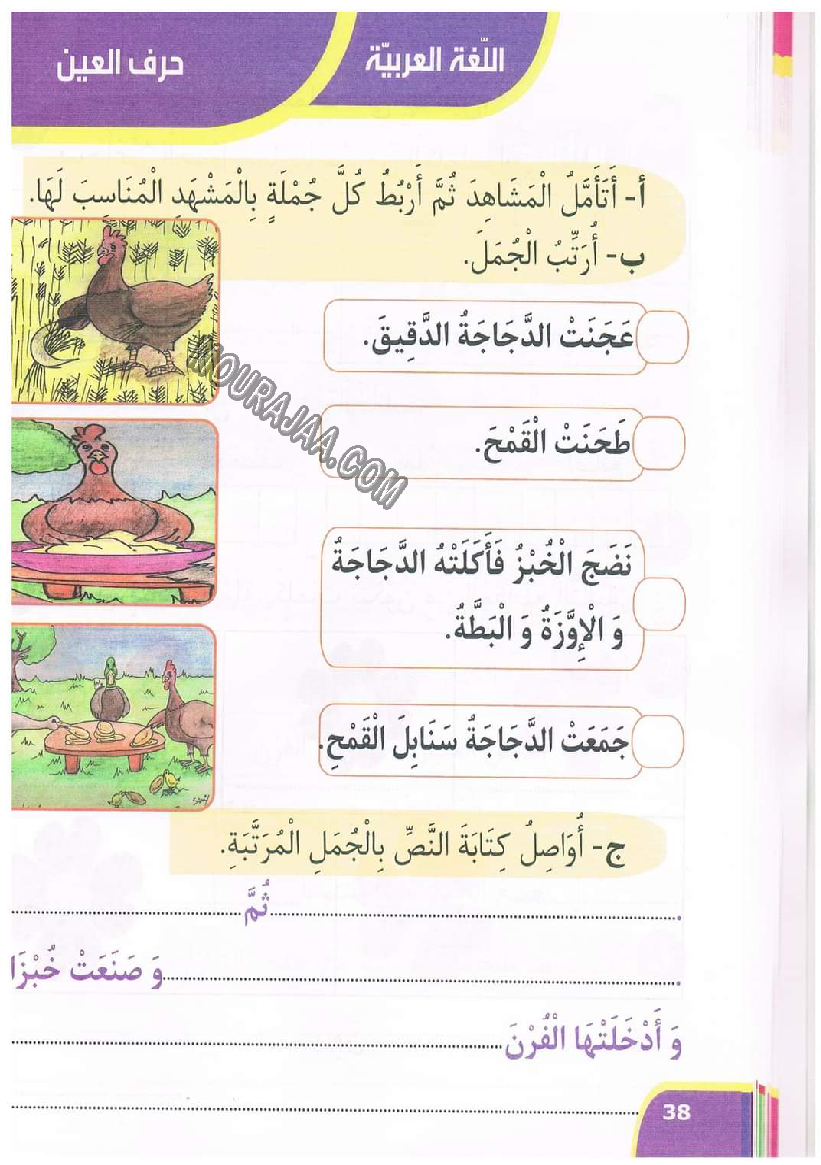 اللّغة العربيّة
حرف العين
أ- أَتَأَمَّلُ الْمَشَاهِدَ ثُمَّ أَرْبُطُ كُلَّ جُمْلَةٍ بِالْمَشْهَدِ الْمُنَاسِبَ لَهَا.
ب- أُرَتِّبُ الْجُمَلَ.
عَجَنَتْ الدَّجَاجَةُ الدَّقِيقَ.
طَحَنَتْ الْقَمْحَ.
نَضَجَ الْخُبْزُ فَأَكَلَتْهُ الدَّجَاجَةُ
وَ الْإِوَّزَةُ وَ الْبَطَّةُ.
جَمَعَتْ الدَّجَاجَةُ سَنَابِلَ الْقَمْحِ.
MOURAJAA.COM
ج- أُوَاصِلُ كِتَابَةَ النَّصِّ بِالْجُمَلِ الْمُرَتَّبَةِ.
ثُمَّ
وَ صَنَعَتْ خُبْزًا
وَ أَدْخَلَتْهَا الْفُرْنَ
38